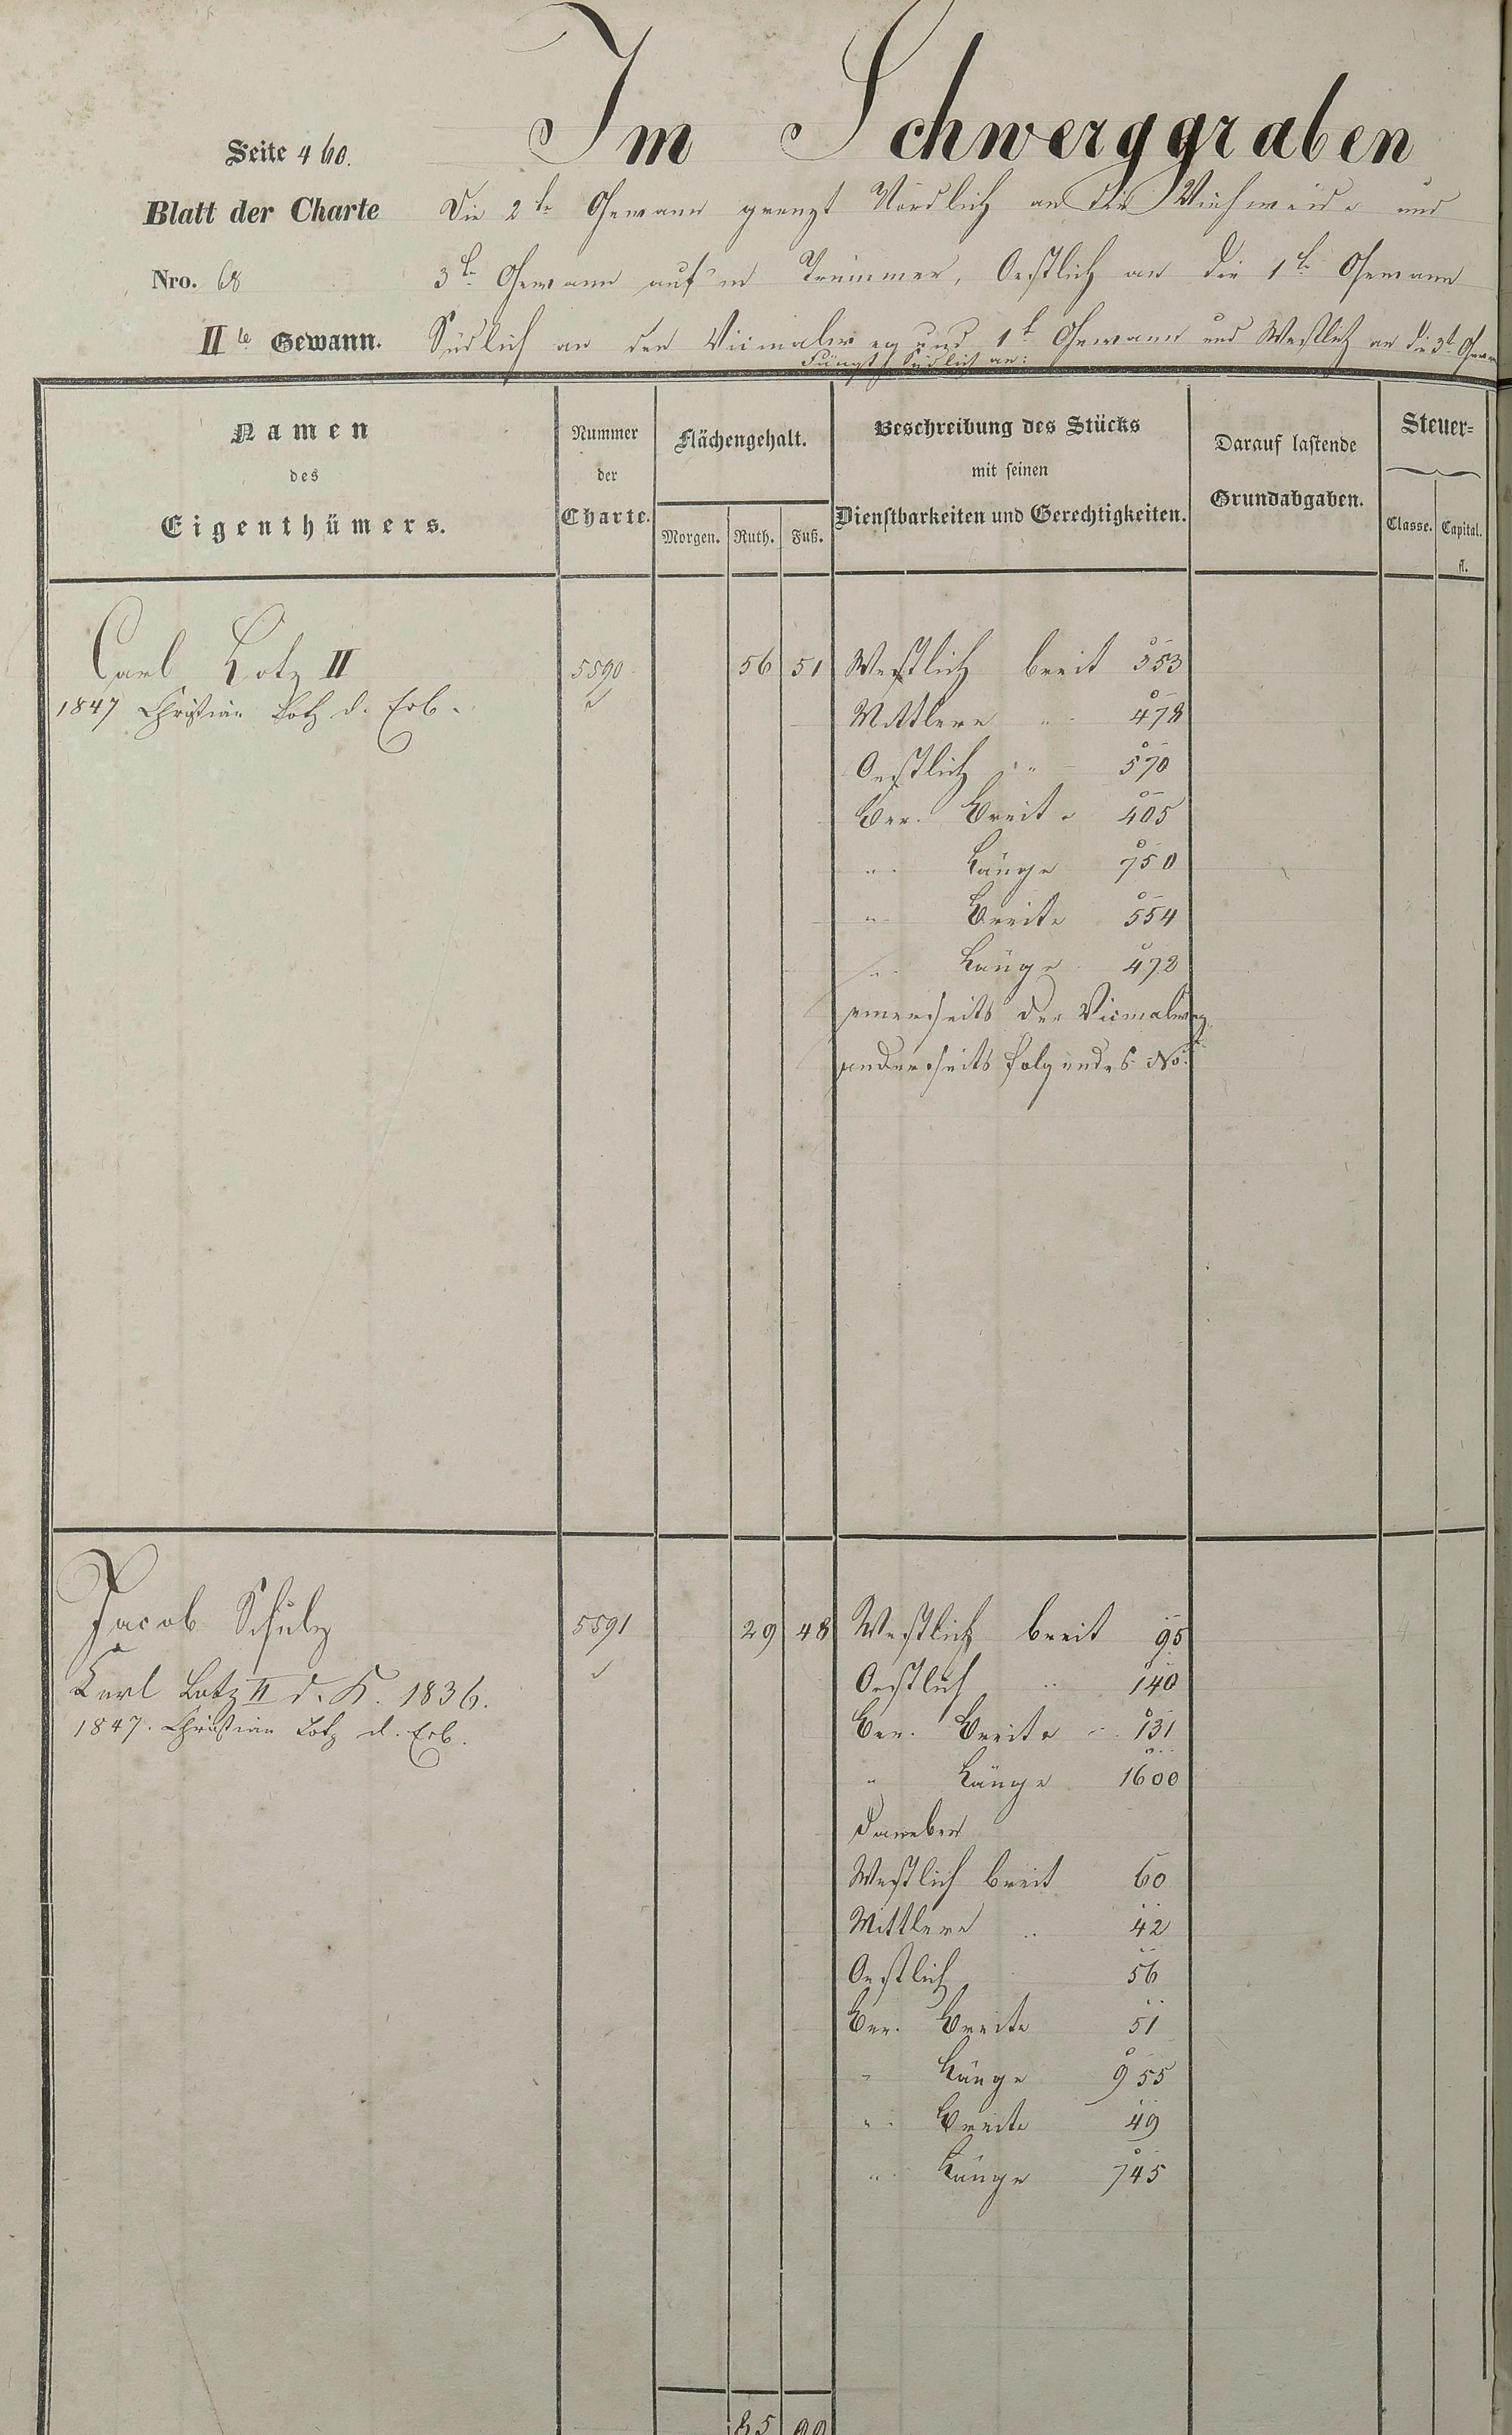 Im Schwerggraben
Seite 460.
Blatt der Charte
Nro. 68
IIte Gewann.
Die 2te Gewann grenzt Nördlich an die Viehweide und
3te Gewann auf'm Trümmer, Oestlich an die 1te Gewann
Südlich an den Vicinalweg und 1te Gewann und Westlich an die 3te Gewann
Fängt Südlich an:
Namen
des
Eigenthümers.
Nummer
der
Charte.
Flächengehalt.
Morgen. Ruth. Fuß.
Beschreibung des Stücks
mit seinen
Dienstbarkeiten und Gerechtigkeiten.
Darauf lastende
Grundabgaben.
Steuer=
Classe. Capital.
fl.
Carl Lotz II 5590 56 51 Westlich breit 353
1847 Christian Lotz d. Erb.
Mittlere " 478
Oestlich " 570
Ber. Breite 405
" Länge 750
" Breite 554
" Länge 472
einerseits der Vicinalweg
anderseits folgendes No.
Jacob Schulz 5591 29 48 Westlich breit 95
Karl Lotz II d. K. 1836.
1847. Christian Lotz d. Erb.
Oestlich " 140
Ber. Breite 131
" Länge 1600
Daneben
Westlich breit 60
Mittlere " 42
Oestlich 56
Ber. Breite 51
" Länge 955
" Breite 49
" Länge 745
85 99